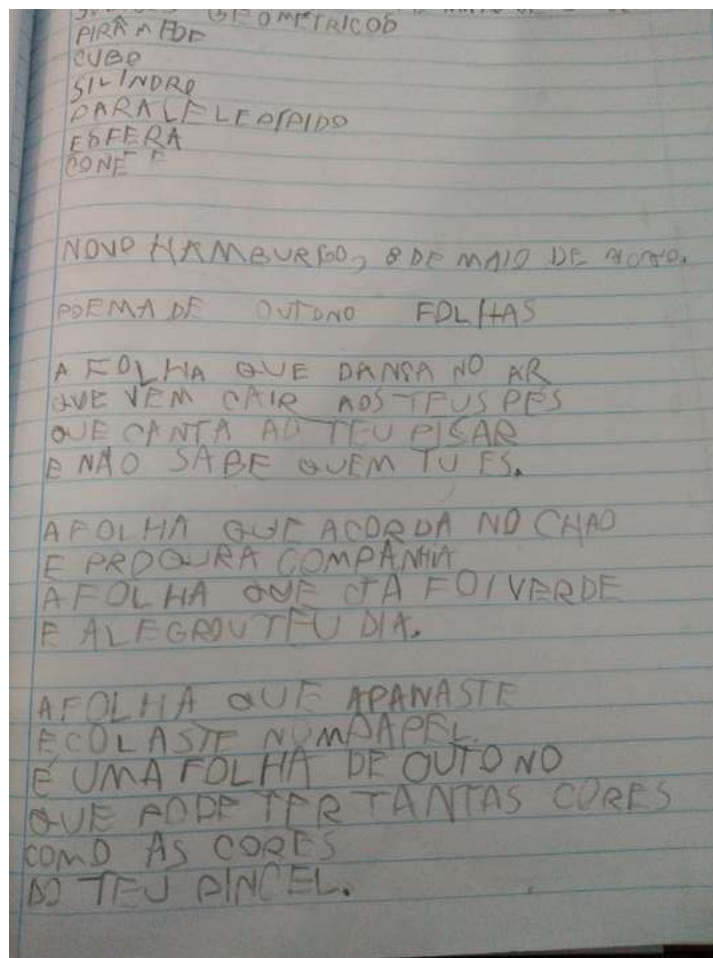 GEOMETRICOS
PIRÂMIDE
CUBO
SILINDRO
PARALELEPIPIDO
ESFERA
CONE
NOVO HAMBURGO, 8 DE MAIO DE
POEMA DE OUTONO FOLHAS
A FOLHA QUE DANSA NO AR
QUE VEM CAIR AOS TEUS PÉS
QUE CANTA AO TEU PISAR
E NÃO SABE QUEM TU ES.
A FOLHA QUE ACORDA NO CHAO
E PROQURA COMPANHIA
A FOLHA QUE JA FOI VERDE
E ALEGROU TEU DIA.
A FOLHA QUE APANASTE
E COLASTE NUM PAPEL
É UMA FOLHA DE OUTONO
QUE PODE TER TANTAS CORES
COMO AS CORES
DO TEU PINCEL.